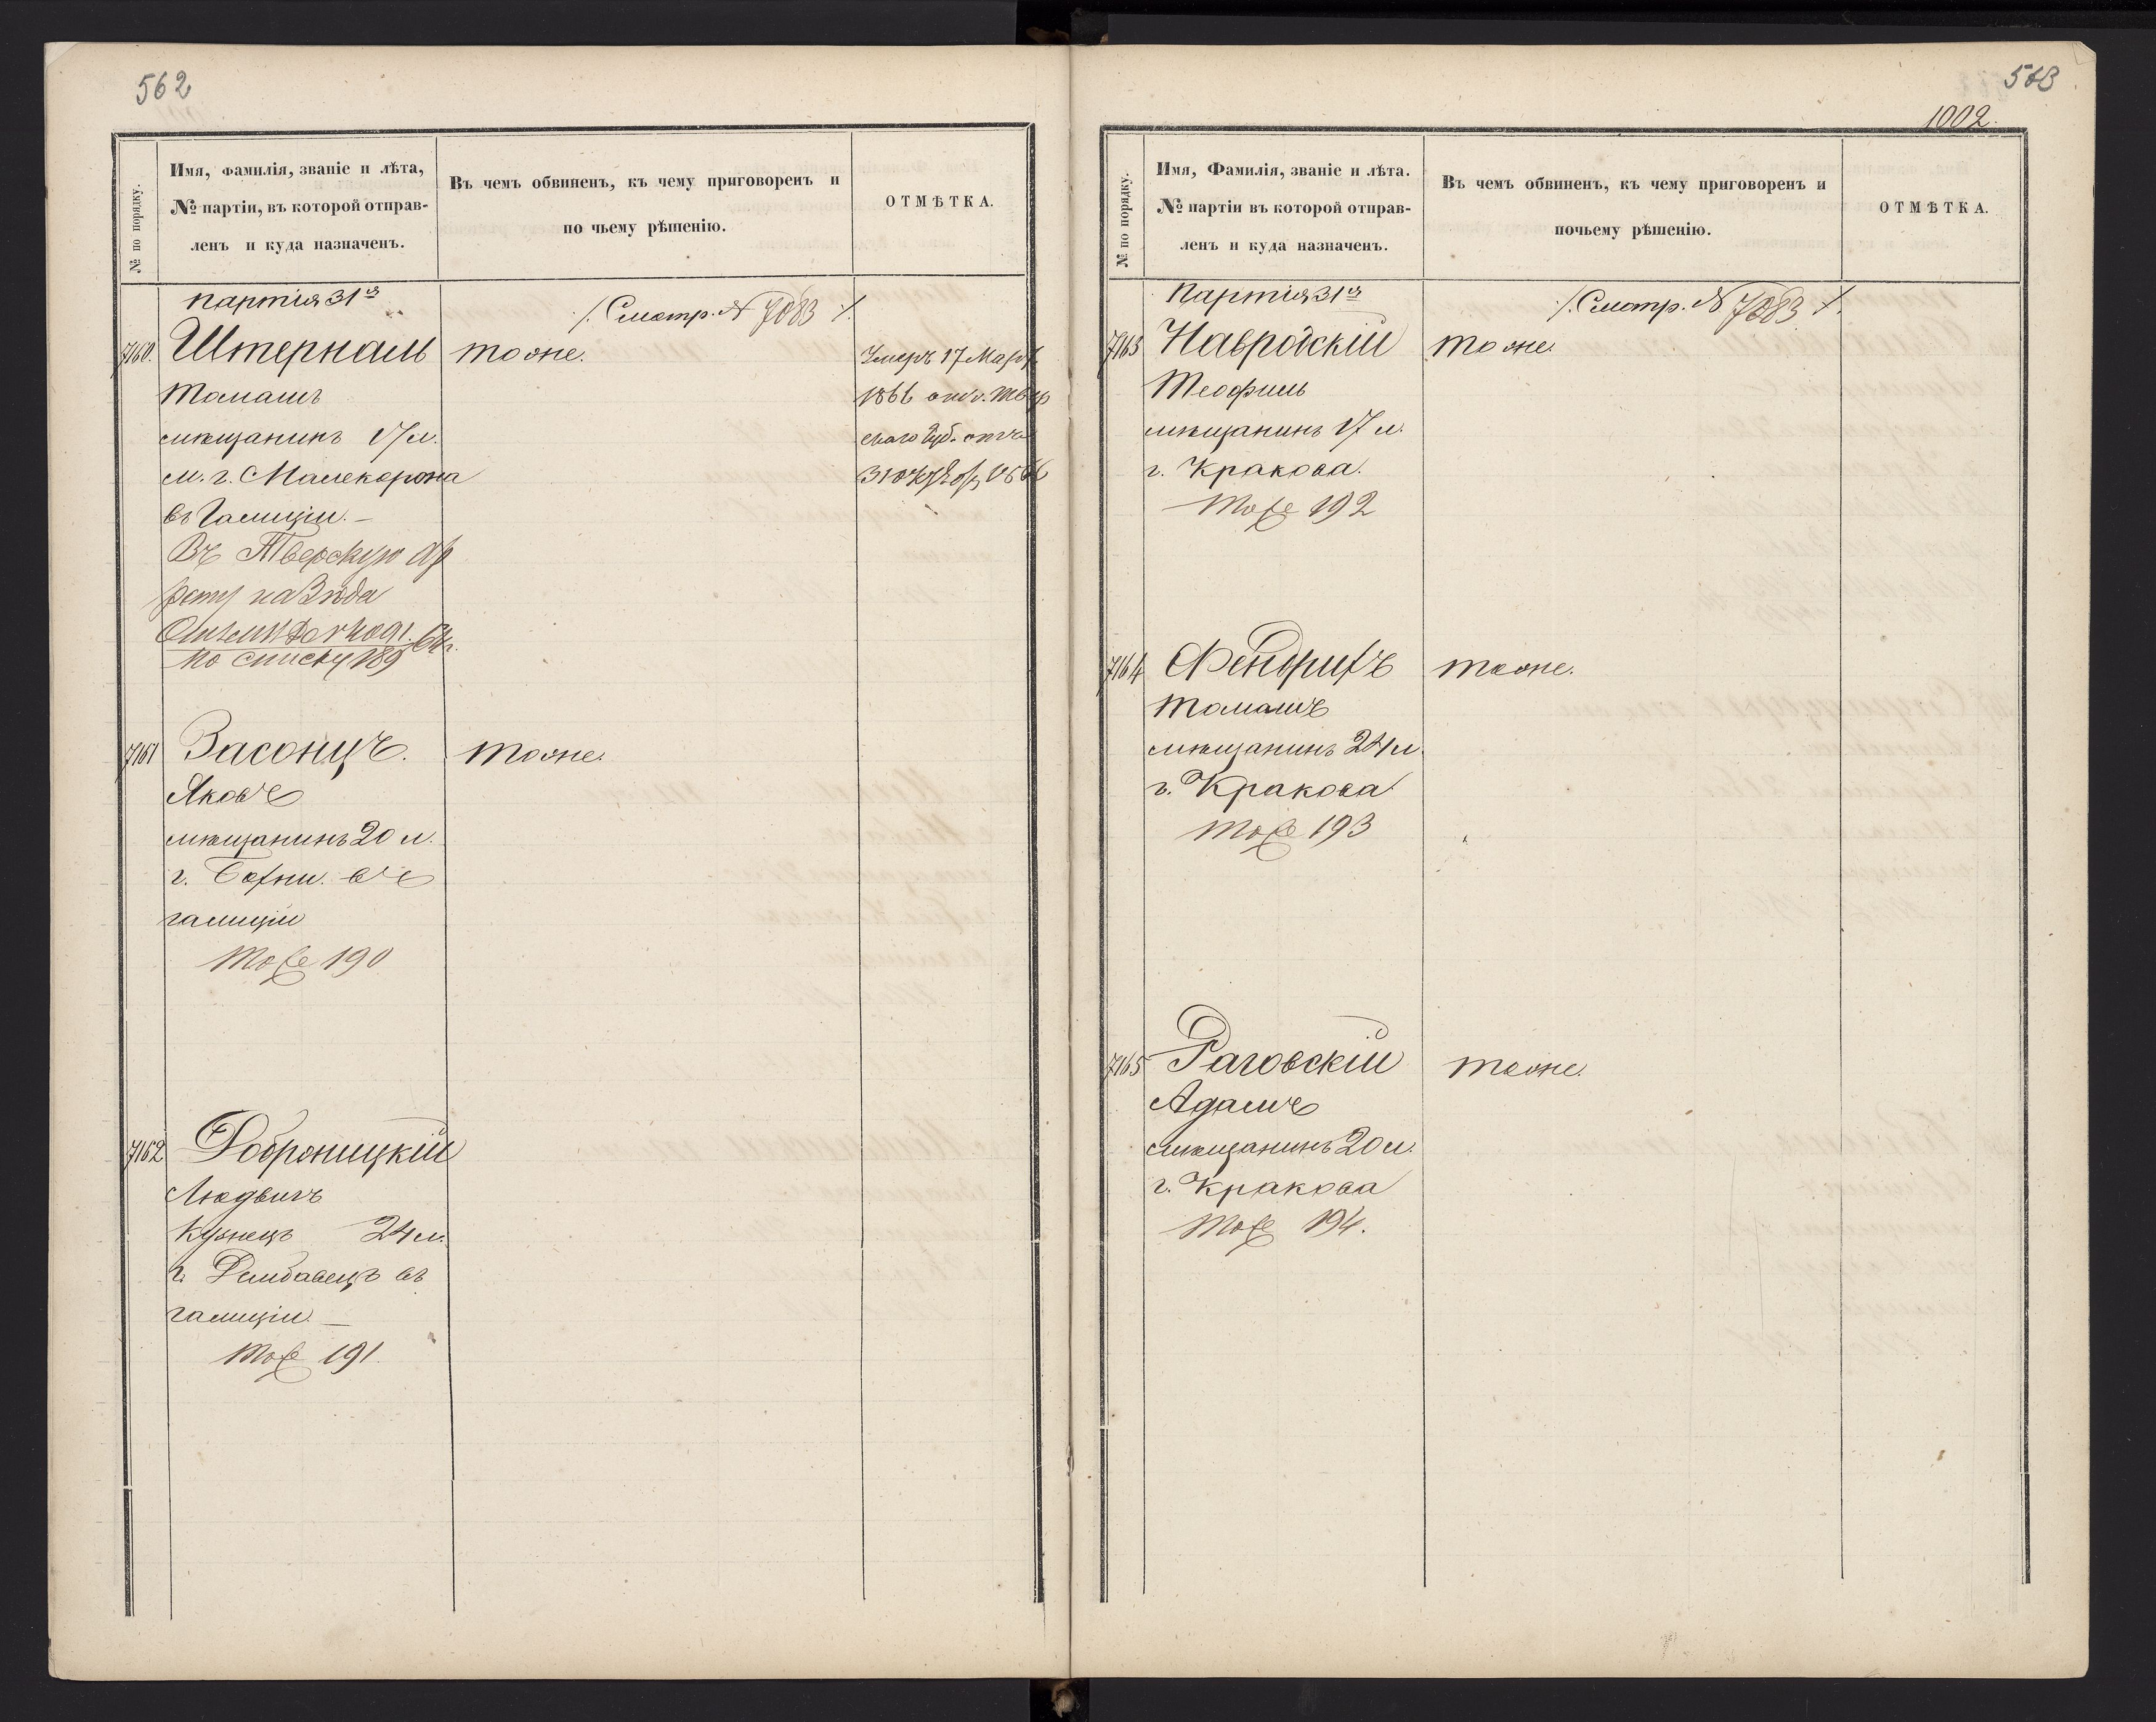 562
№ по порядку.
Имя, фамилія, званіе и лѣта,
№ партіи, въ которой отправ-
ленъ и куда назначенъ.
Въ чемъ обвиненъ, къ чему приговоренъ и
по чьему рѣшенію.
ОТМѢТКА.
партія 31я
/. Смотр. № 7083 /.
7160. Штерналь
тоже.
Томашъ
мѣщанинъ 17 л.
м. г. Малекорона
въ Галиціи. –
Въ Тверскую
роту на 3 года
по списку 189
Умеръ 17 Мар
1866 Твер
скаго Губ. отъ
31 1866
7161 Засонцъ.
тоже.
Яковъ
мѣщанинъ 20 л.
г. Бохни. въ
галиціи
Тоже 190
7162 Доброницкій
Людвигъ
Кузнецъ 24 л.
г. въ
галиціи. –
Тоже 191.
563
1002.
№ по порядку.
Имя, Фамилія, званіе и лѣта.
№ партіи въ которой отправ-
ленъ и куда назначенъ.
Въ чемъ обвиненъ, къ чему приговоренъ и
почьему рѣшенію.
ОТМѢТКА.
Партія 31я
/. Смотр. № 7083 /.
7163 Навродскій
тоже.
Теофиль
мѣщанинъ 17 л.
г. Кракова.
Тоже 192
7164 Фендрихъ
тоже.
Томашъ
мѣщанинъ 24 л.
г. Кракова
Тоже 193
7165 Раговскій
тоже.
Адамъ
мѣщанинъ 20 л.
г. Кракова
Тоже 194.